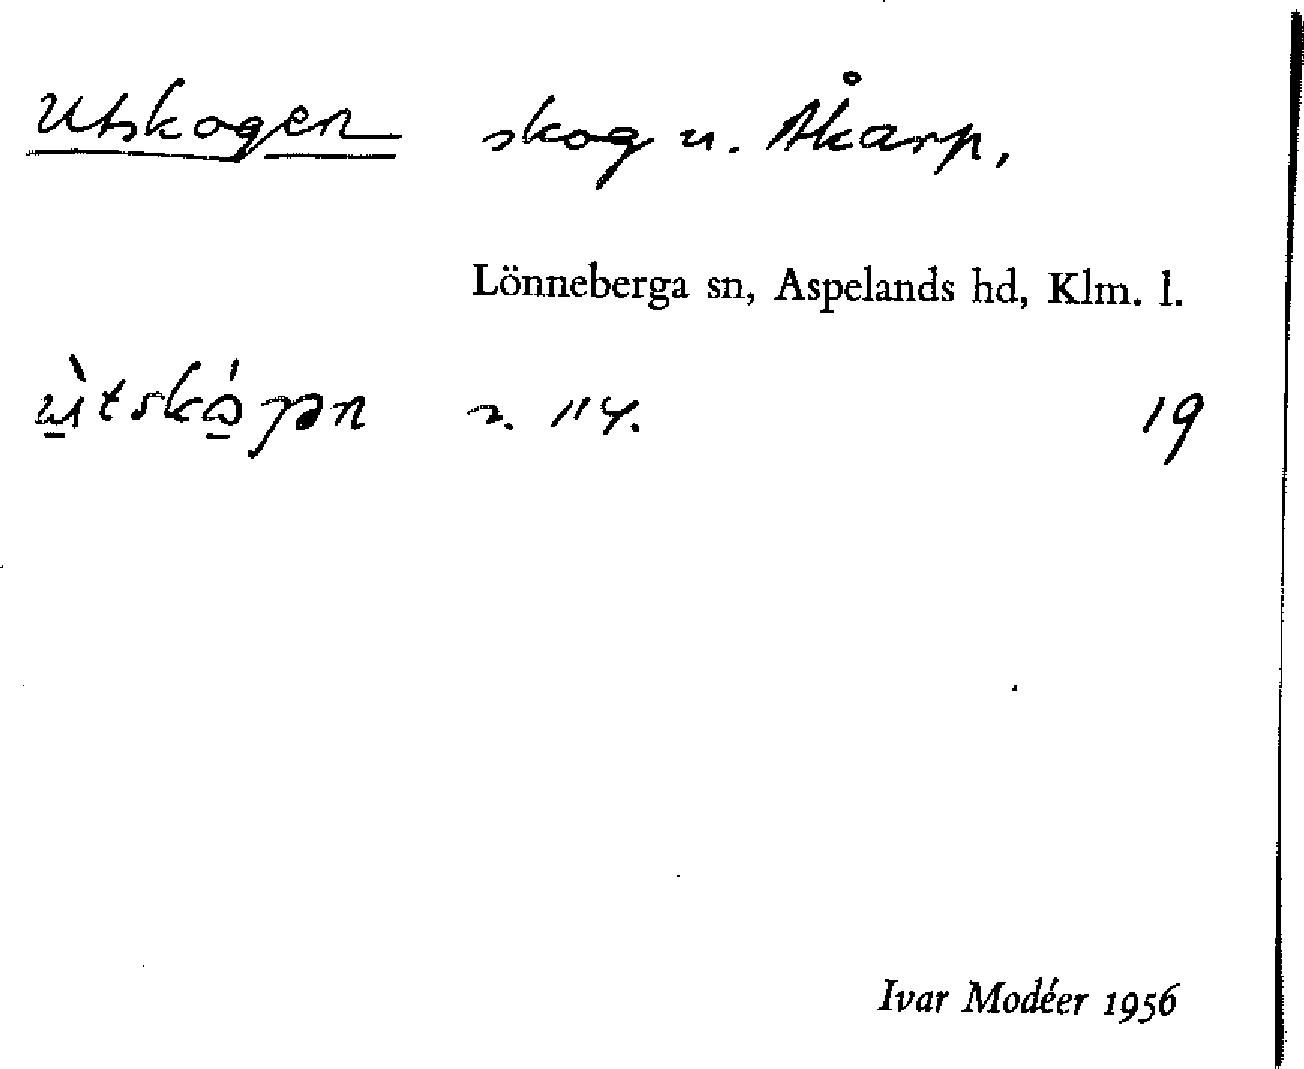 Utskogen skog u. Åkarp,
Lönneberga sn, Aspelands hd, Klm. l.
114. 19
Ivar Modéer 1956